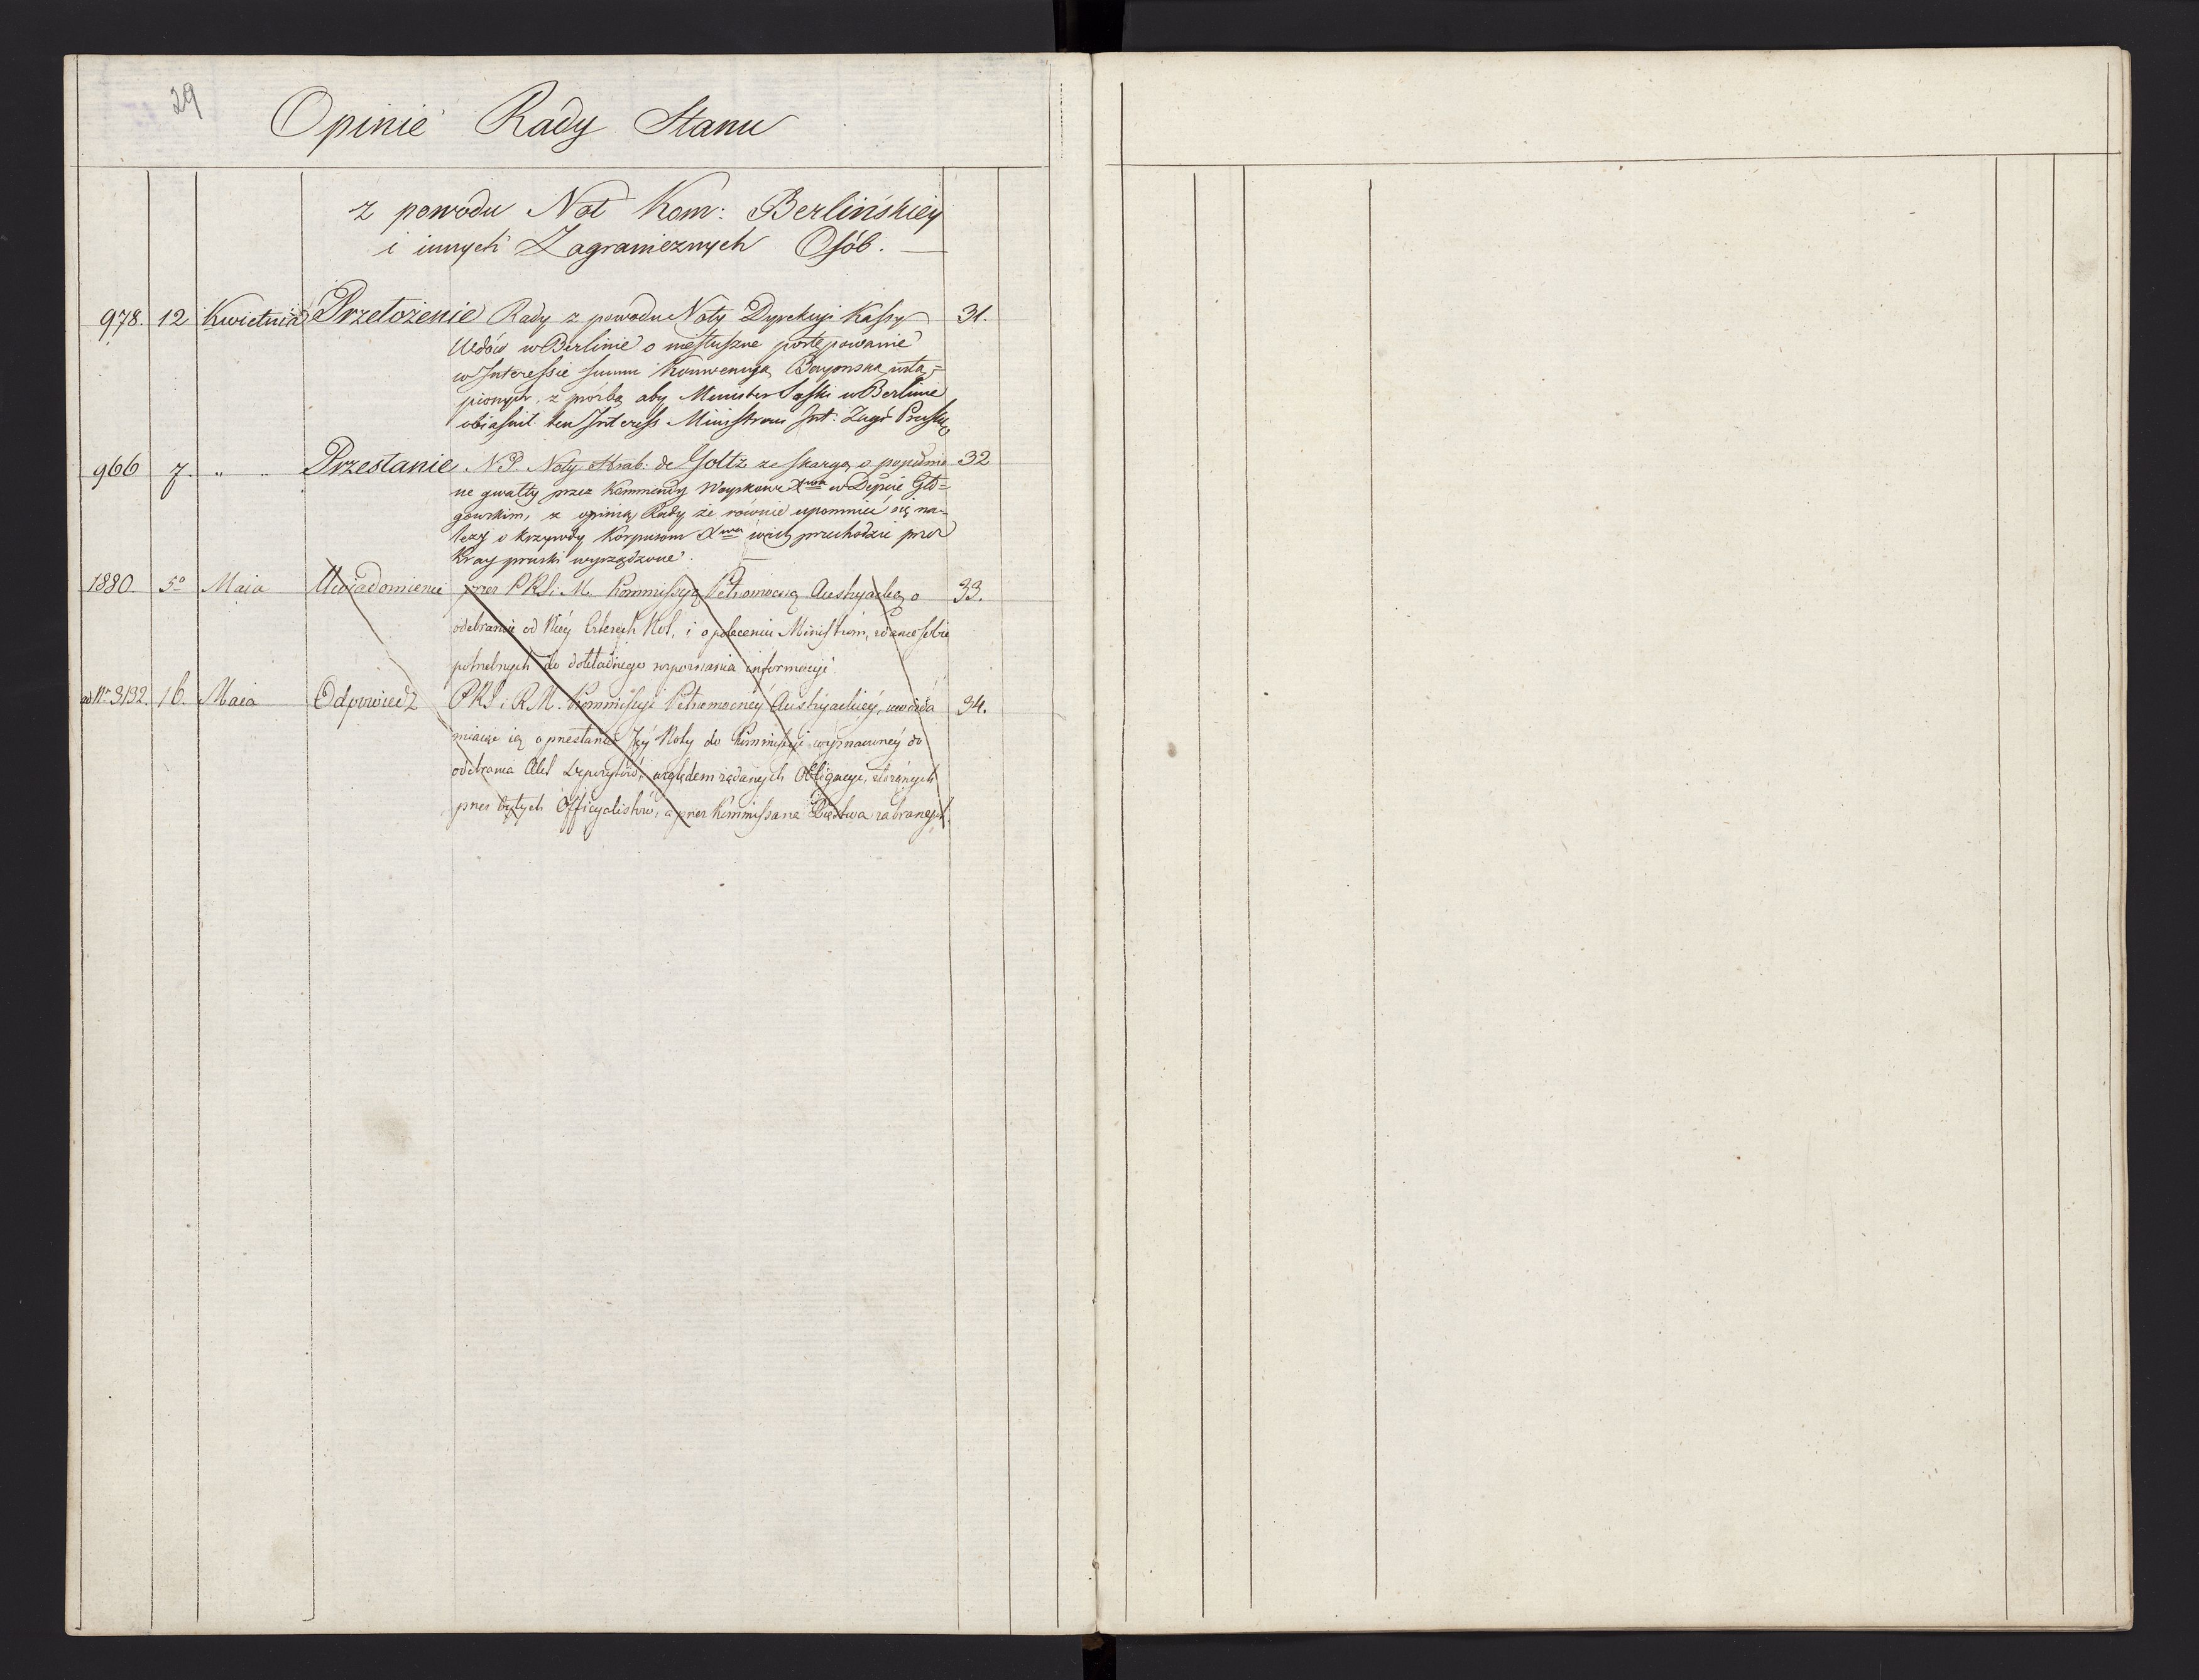 29
Opinie Rady Stanu
z powodu Not Kom: Berlińskiey
i innych Zagranicznych Osób.
978. 12 Kwietnia Przełożenie Rady z powodu Noty Dyrekcyi Kassy 31.
Wdów w Berlinie o niesłuszne postępowanie
w Interessie summ Konwencyą Bayonską ustą=
pionych, z prośbą aby Minister Saski w Berlinie
obiaśnił ten Interess Ministrowi Int: Zagr: Prusk:
966 7. " " Przesłanie N.P. Noty Hrab: de Goltz ze skargą o popełnio 32
ne gwałty przez Kommendy Woyskowe Xwa w Depcie Gło=
gowskim, z opinią Rady że równie upomnieć się na-
leży o krzywdy Korpusom Xwa w ich przechodzie przez
Kray pruski wyrządzone.
1880. 5º Maia Uwiadomienie przez P.R.S. i M. Kommissyą Pełnomocną Austryacką o 33.
odebraniu od Niéy Czterech Not, i o poleceniu Ministrom, zdanie sobie
potrzebnych do dokładnego rozpoznania informacyi
ad Nr 3132. 16. Maia Odpowiedź P.R.S. i R.M. Kommissyi Pełnomocnéy Austryackiéy, uwiado 34.
miaiąc ią o przesłaniu Jéy Noty do Kommissyi wyznaczonéy do
odebrania Akt Depozytów, względem żądanych Obligacyi, złożonych
przez byłych Officyalistów, a przez Kommissarza Xięstwa zabranych.